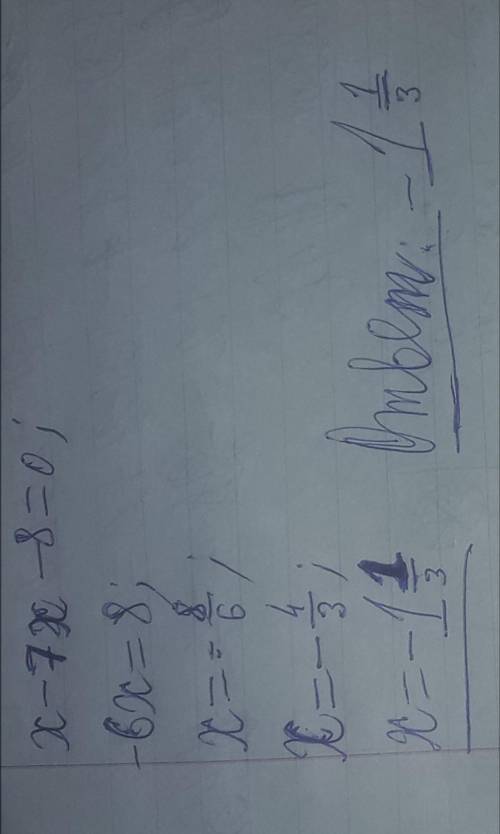 x-7x-8=0;
-6x=8;
x=-8/6;
x=-4/3;
x=-1 1/3
Ответ: -1 1/3